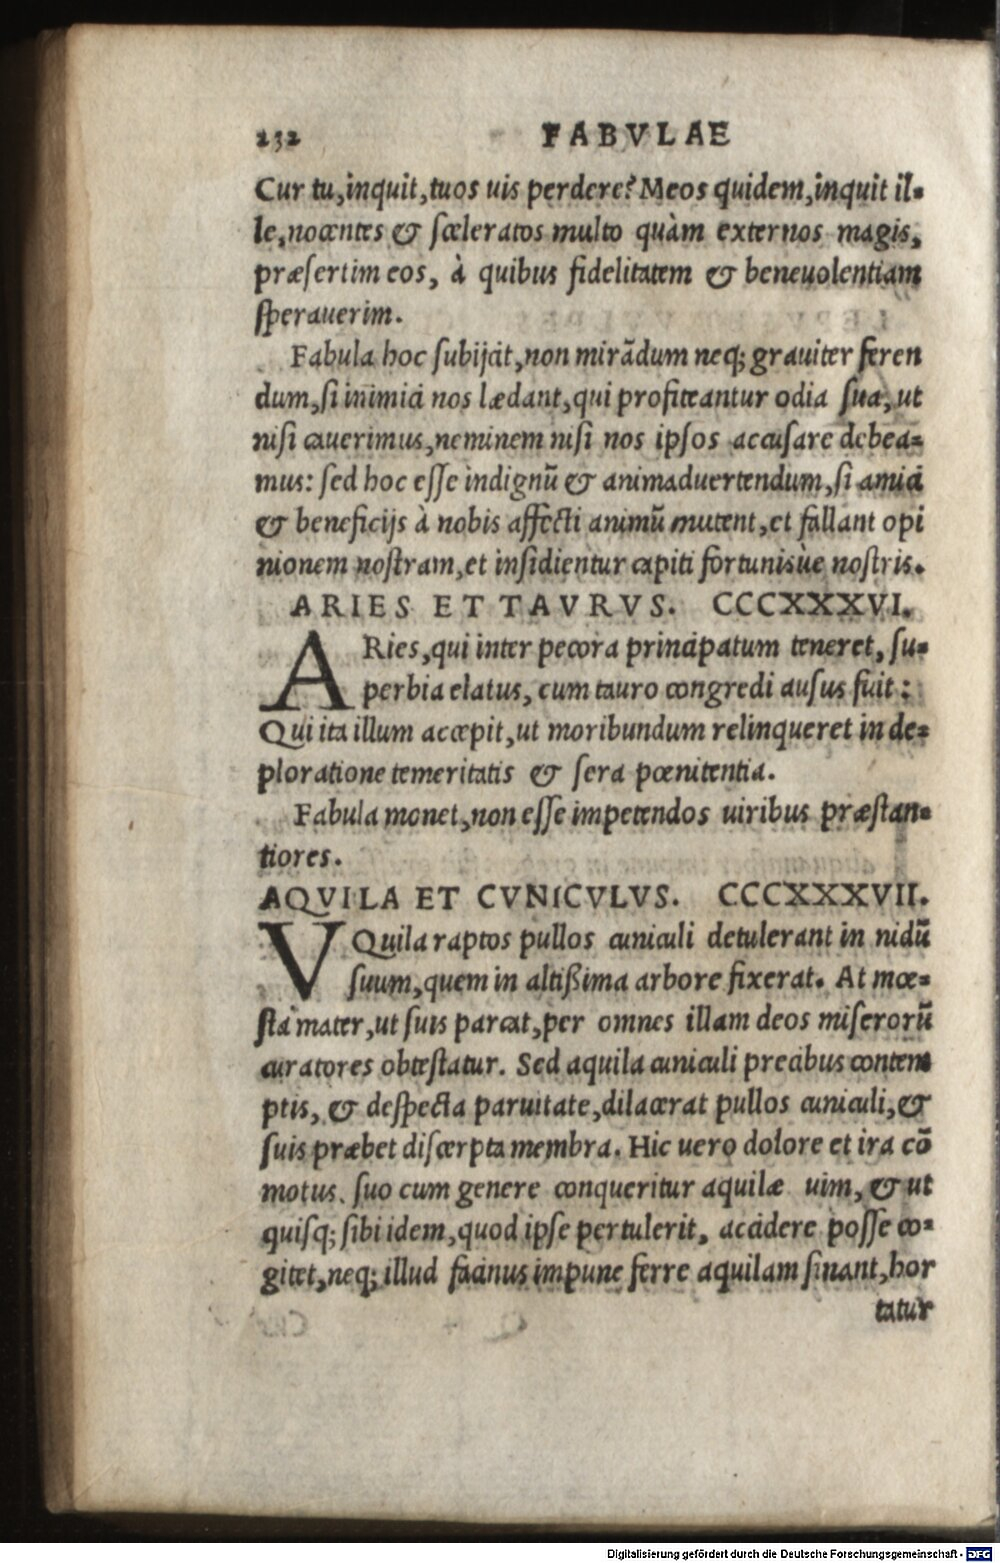 232 FABVLAE
Cur tu,inquit,tuos uis perdere? Meos quidem,inquit il-
le,nocentes & sceleratos multo quàm externos magis,
præsertim eos, à quibus fidelitatem & beneuolentiam
sperauerim.
Fabula hoc subijcit,non mirãdum neq; grauiter feren
dum,si inimici nos lædant,qui profiteantur odia sua,ut
nisi cauerimus,neminem nisi nos ipsos accusare debea-
mus: sed hoc esse indignũ & animaduertendum,si amici
& beneficijs à nobis affecti animũ mutent,et fallant opi
nionem nostram,et insidientur capiti fortunisùe nostris.
ARIES ET TAVRVS. CCCXXXVI.
ARies,qui inter pecora principatum teneret, su-
perbia elatus, cum tauro congredi ausus fuit:
Qui ita illum accepit,ut moribundum relinqueret in de-
ploratione temeritatis & sera pœnitentia.
Fabula monet,non esse impetendos uiribus præstan-
tiores.
AQVILA ET CVNICVLVS. CCCXXXVII.
VQuila raptos pullos cuniculi detulerant in nidũ
suum,quem in altißima arbore fixerat. At mœ-
sta mater,ut suis parcat,per omnes illam deos miserorũ
curatores obtestatur. Sed aquila cuniculi precibus contem
ptis, & despecta paruitate,dilacerat pullos cuniculi,&
suis præbet discerpta membra. Hic uero dolore et ira cõ
motus. suo cum genere conqueritur aquilæ uim, & ut
quisq; sibi idem,quod ipse pertulerit, accidere posse co-
gitet,neq; illud facinus impune ferre aquilam sinant,hor
tatur
Digitalisierung gefördert durch die Deutsche Forschungsgemeinschaft - DFG